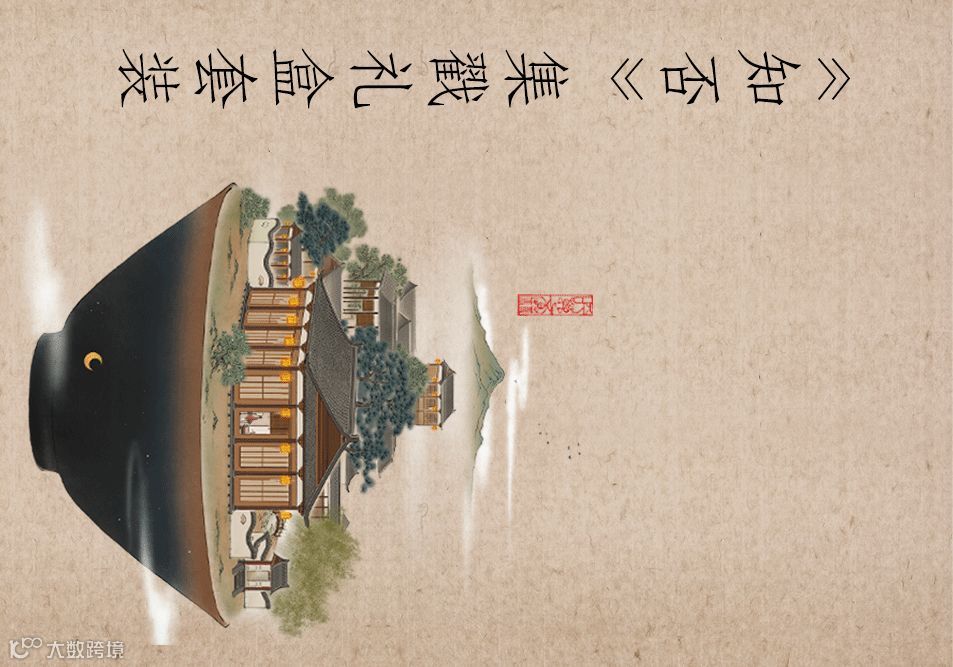 《知否》集戳礼盒套装
大数跨境